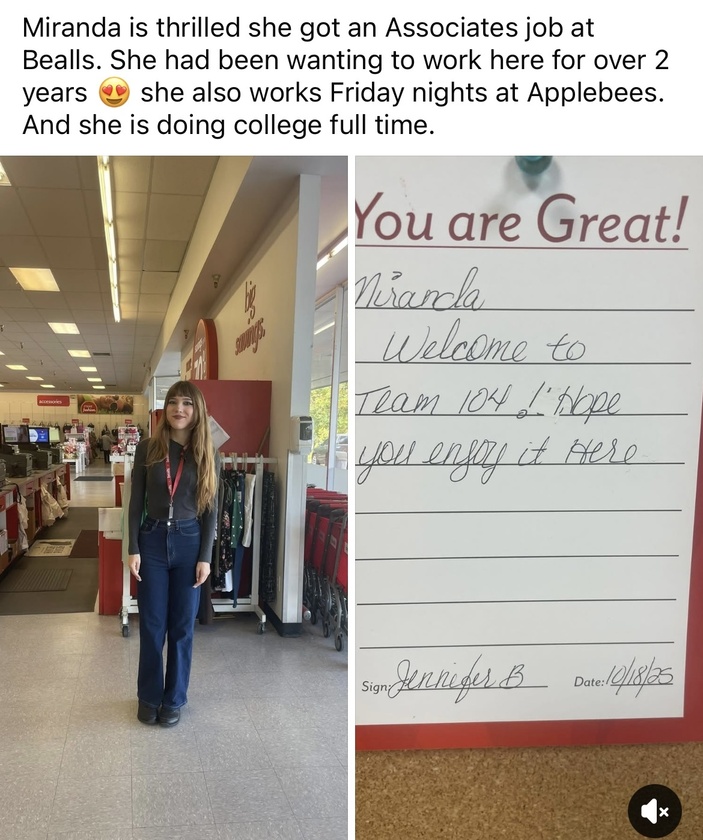 Miranda is thrilled she got an Associates job at
Bealls. She had been wanting to work here for over 2
years 😍 she also works Friday nights at Applebees.
And she is doing college full time.
big
savings.
accessories
You are Great!
Miranda
Welcome to
Team 104! Hope
you enjoy it Here
Sign: Jennifer B Date: 10/18/25